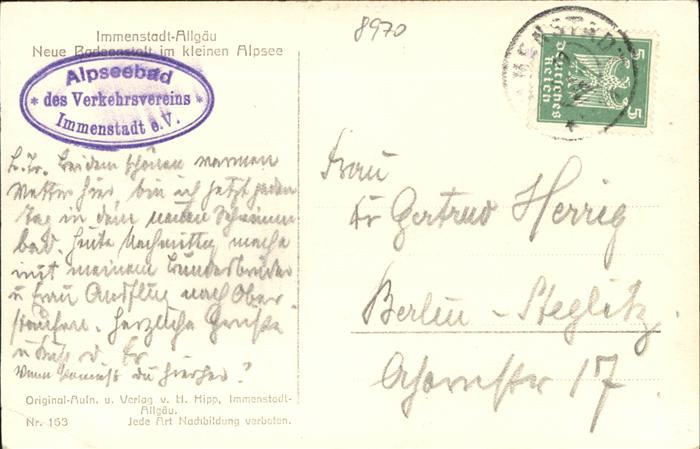 Immenstadt-Allgäu
Neue Badeanstalt im kleinen Alpsee
8970
Alpseebad
* des Verkehrsvereins *
Immenstadt e.V.
IMMENSTADT
5 5
Deutsches
Reich
L. Tr. Bei dem schönen warmen
Wetter hier, bin ich jetzt jeden
Tag in dem neuen Schwimm
bad. Heute Nachmittag mache
mit meinem Bundesbruder
u Frau Ausflug nach Ober
staufen. Herzliche Grüsse
u Kuß d.
Wann kommst du hierher?
Frau
Dr Gertrud Herrig
Berlin - Steglitz
17
Original-Aufn. u. Verlag v. H. Hipp, Immenstadt-
Allgäu.
Nr. 163 Jede Art Nachbildung verboten.